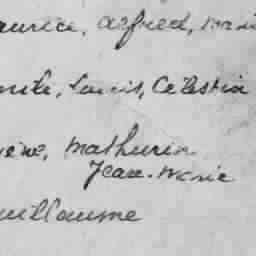 aurice, alfred, Marie
Louis, Célestin
Mathurin
Jean-Marie
uillaume